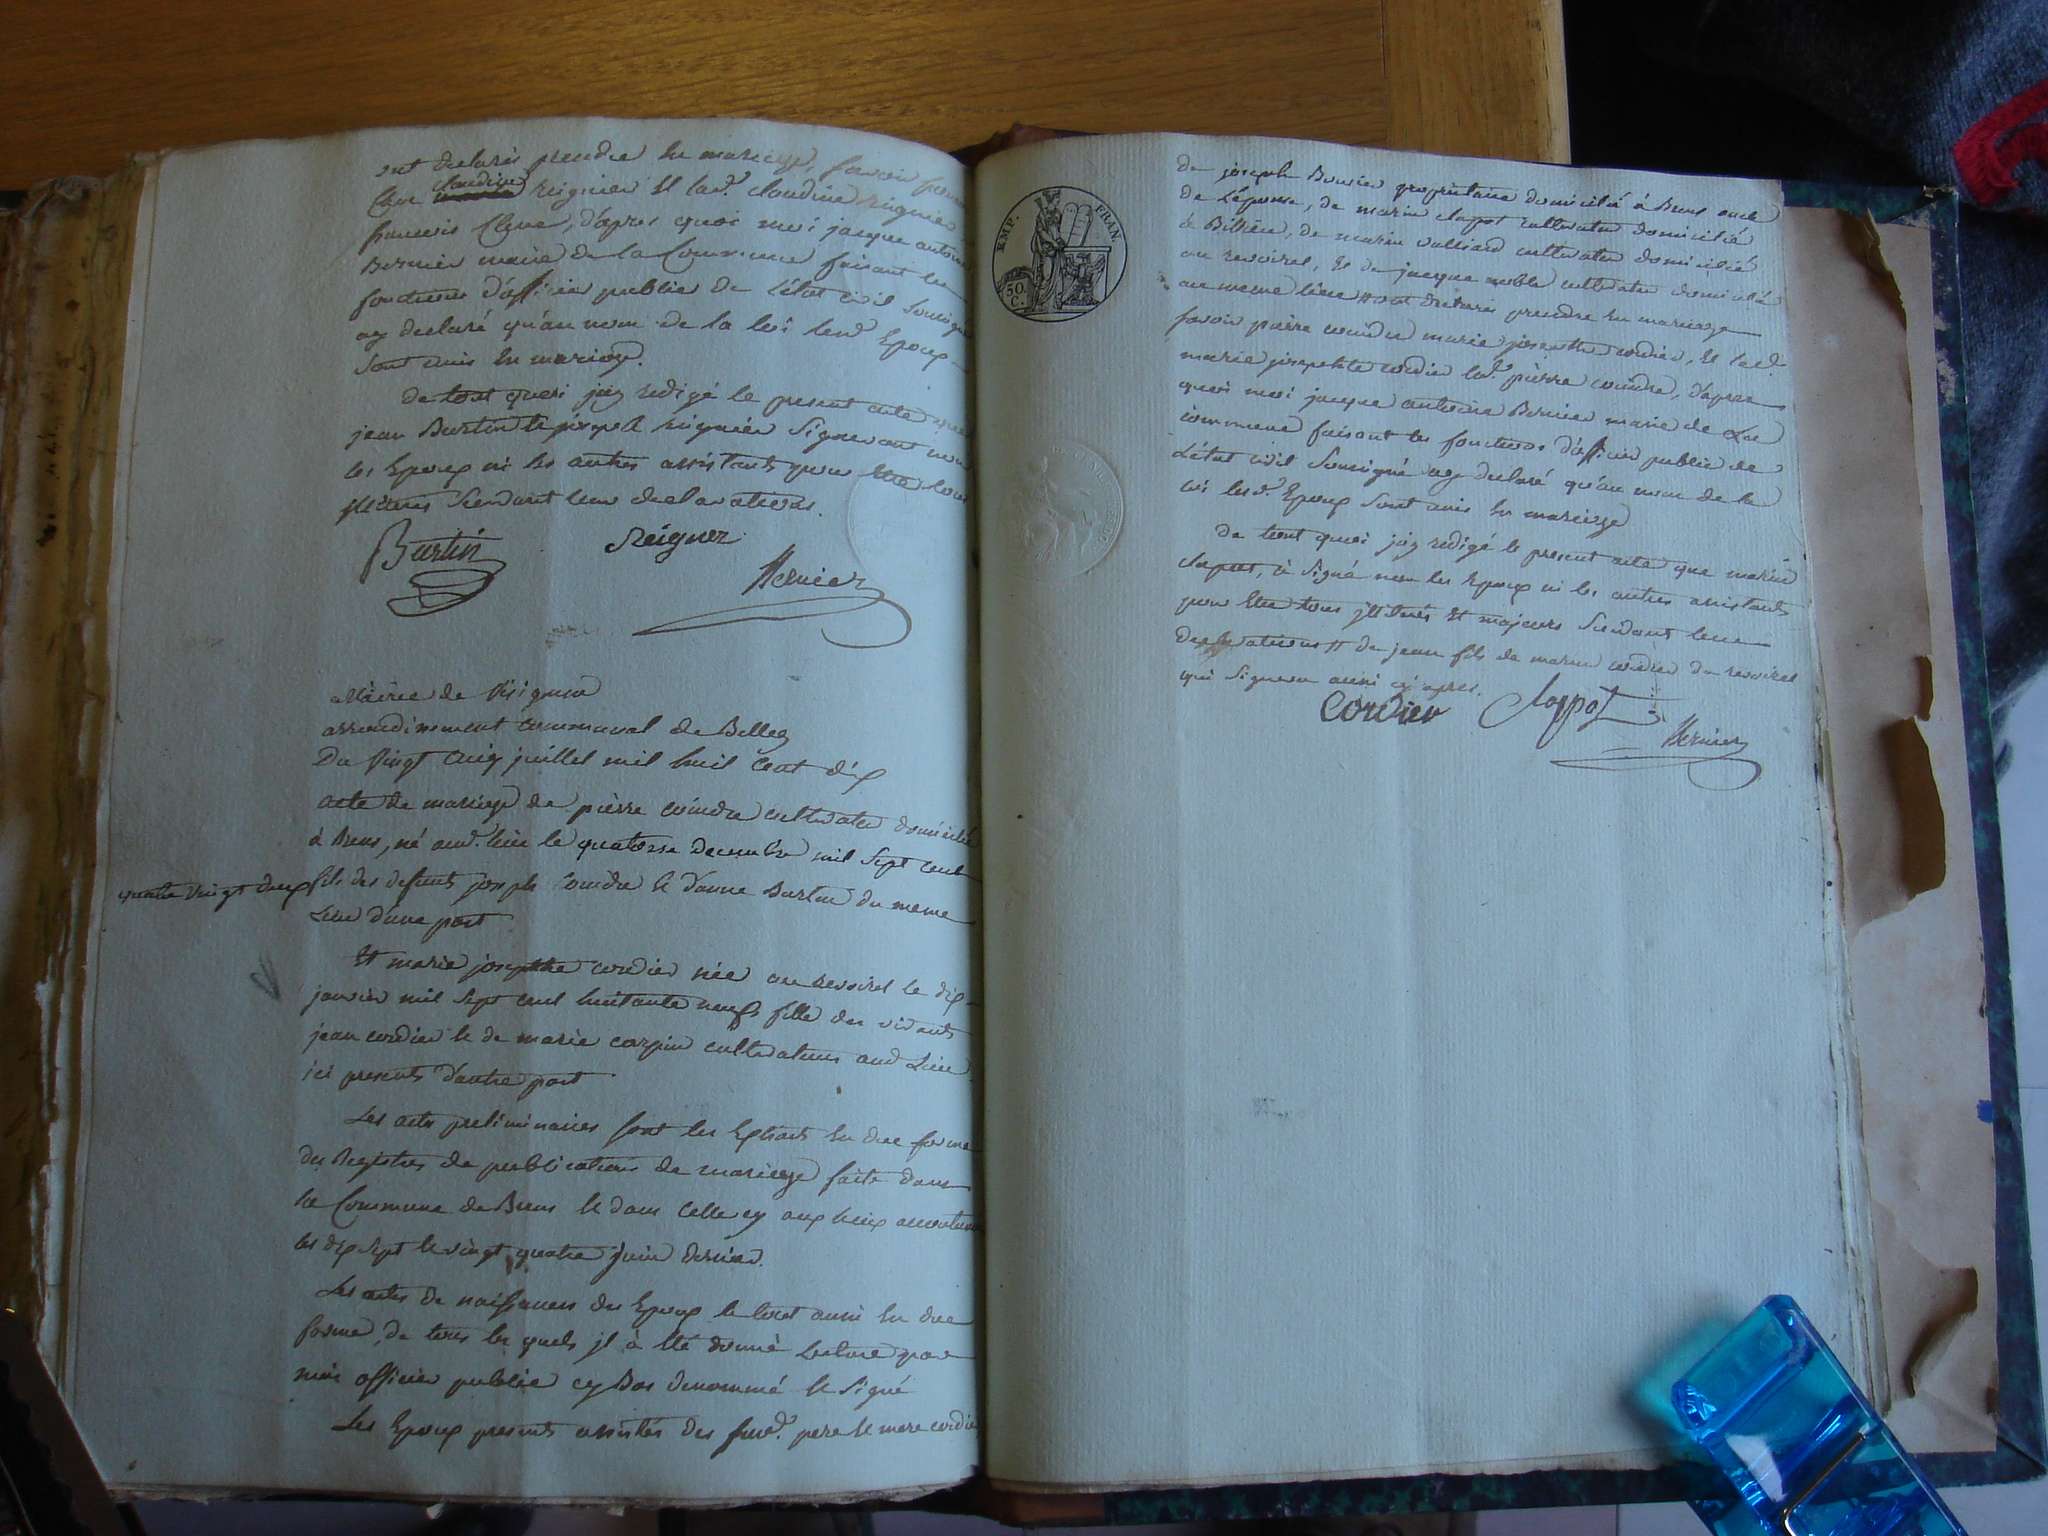 ont declarés prendre en mariage, savoir
Claudine
Clerc Reignier et lad.e Claudine Reignier
francois Clerc, d'apres quoi moi jacque antoine
Bernier maire de la Commune faisant les
fonctions d'officier public de L'état civil Soussigné
ay declaré qu'au nom de la loi lesd. Epoux
Sont unis En mariage.
De tout quoi j'ay redigé le present acte que
jean Burtin et joseph reignier Signeront non
les Epoux ni les autres assistants pour Etre tous
jlliterés Suivant leur declarations.
Burtin Reignier
Bernier
Mairie de Virignin
arrondissement Communal de Belley
Du Vingt Cinq juillet mil huit Cent dix
acte de mariage de pierre coindre cultivateur domicilié
à Brens, né aud. lieu le quatorse decembre mil Sept cent
quatre vingt deux fils des defunts joseph Coindre et d'anne Burtin du meme
Lieu d'une part
Et marie josephte cordier née au revoiret le dix
janvier mil Sept cent huitante neuf fille des vivants
jean cordier et de marie carpin cultivateurs aud. Lieu
ici presents d'autre part
Les actes preliminaires sont les Extraits En due forme
des Registres de publications de mariage faite dans
la Commune de Brens et dans Celle cy aux lieux accoutumés
les dix Sept et vingt quatre juin dernier.
Les actes de naissances des Epoux le tout aussi En due
forme, de tous les quels jl à Eté donné Lecture par
moi officier public cy Bas denommé et Signé
Les Epoux presents assistés des susd. pere et mere cordier
EMP. FRAN.
50.
C.
de joseph Bovier propriétaire domicilié à Brens oncle
de L'épouse, de marin clappot cultivateur domicilié
à Billieu, de marin valliard cultivateur domicilié
au revoiret, et de jacque noble cultivateur domicilié
au meme lieu # ont declarés prendre En mariage
savoir pierre coindre marie josephte cordier, et lad.
marie josephte cordier led. pierre coindre, d'apres
quoi moi jacque antoine Bernier maire de La
commune faisant les fonctions d'officier public de
L'état civil Soussigné ay declaré qu'au nom de la
loi lesd. Epoux Sont unis En mariage
De tout quoi j'ay redigé le present acte que marin
clapot, à Signé non les Epoux ni les autres assistants
pour Etre tous jlliterés Et majeurs Suivant leur
declarations # de jean fils de marin cordier du revoiret
qui Signera aussi cy apres.
Cordier Clappot
Bernier